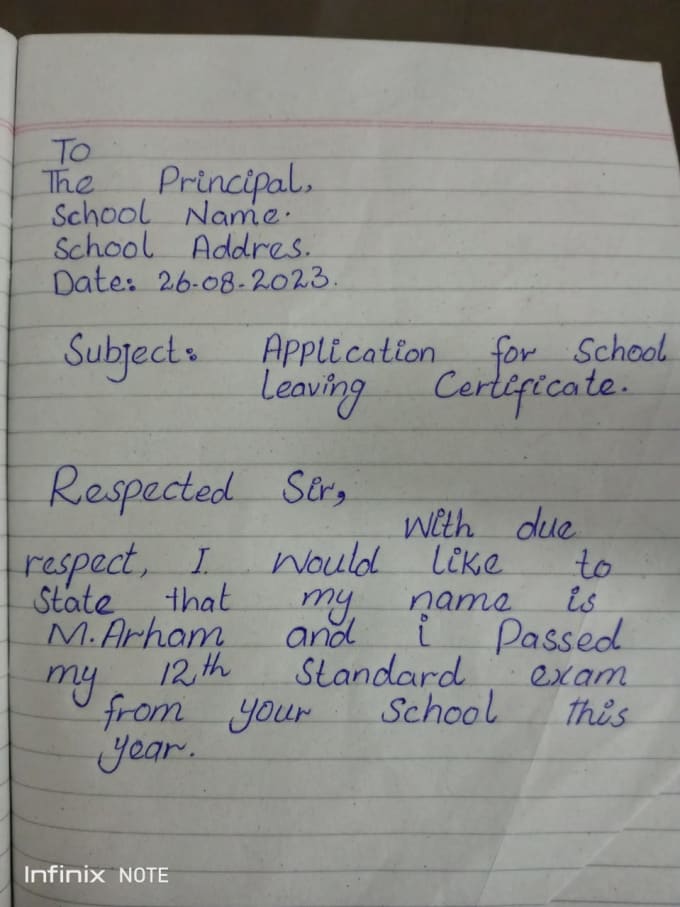 To
The Principal,
School Name.
School Addres.
Date: 26-08-2023.
Subject: Application for School
Leaving Certificate.
Respected Sir,
With due
respect, I would like to
State that my name is
M.Arham and i Passed
my 12th Standard exam
from your School this
year.
Infinix NOTE